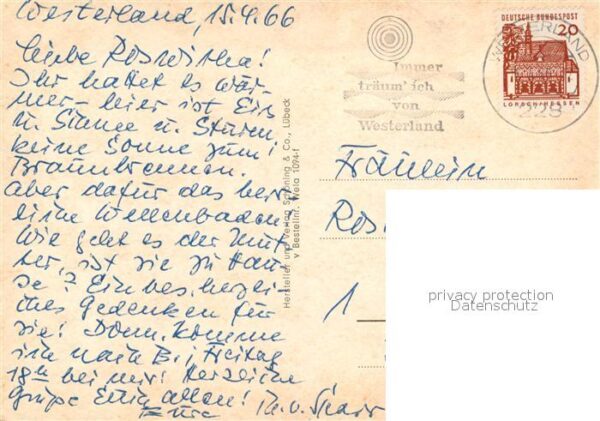 Westerland, 15.4.66
Liebe Roswitha!
Ihr hattet es wär-
mer - hier ist Eis
u. Sturm,
keine Sonne zum
Braunbrennen.
Aber dafür das herr-
liche Wellenbaden
Wie geht es der Mut-
ter, ist sie zu Hau-
se? Ein bes. herzli-
ches Gedenken für
sie! Donn. komme
ich nach B., Freitag
18h bei mir! Herzliche
Grüße Euch allen!
Hersteller und Verlag Schöning & Co., Lübeck
v Bestellnr. Wela 1094-f
Immer
träum' ich
von
Westerland
DEUTSCHE BUNDESPOST
20
LORSCH/HESSEN
WESTERLAND
228
Fräulein
Ros
1
privacy protection
Datenschutz